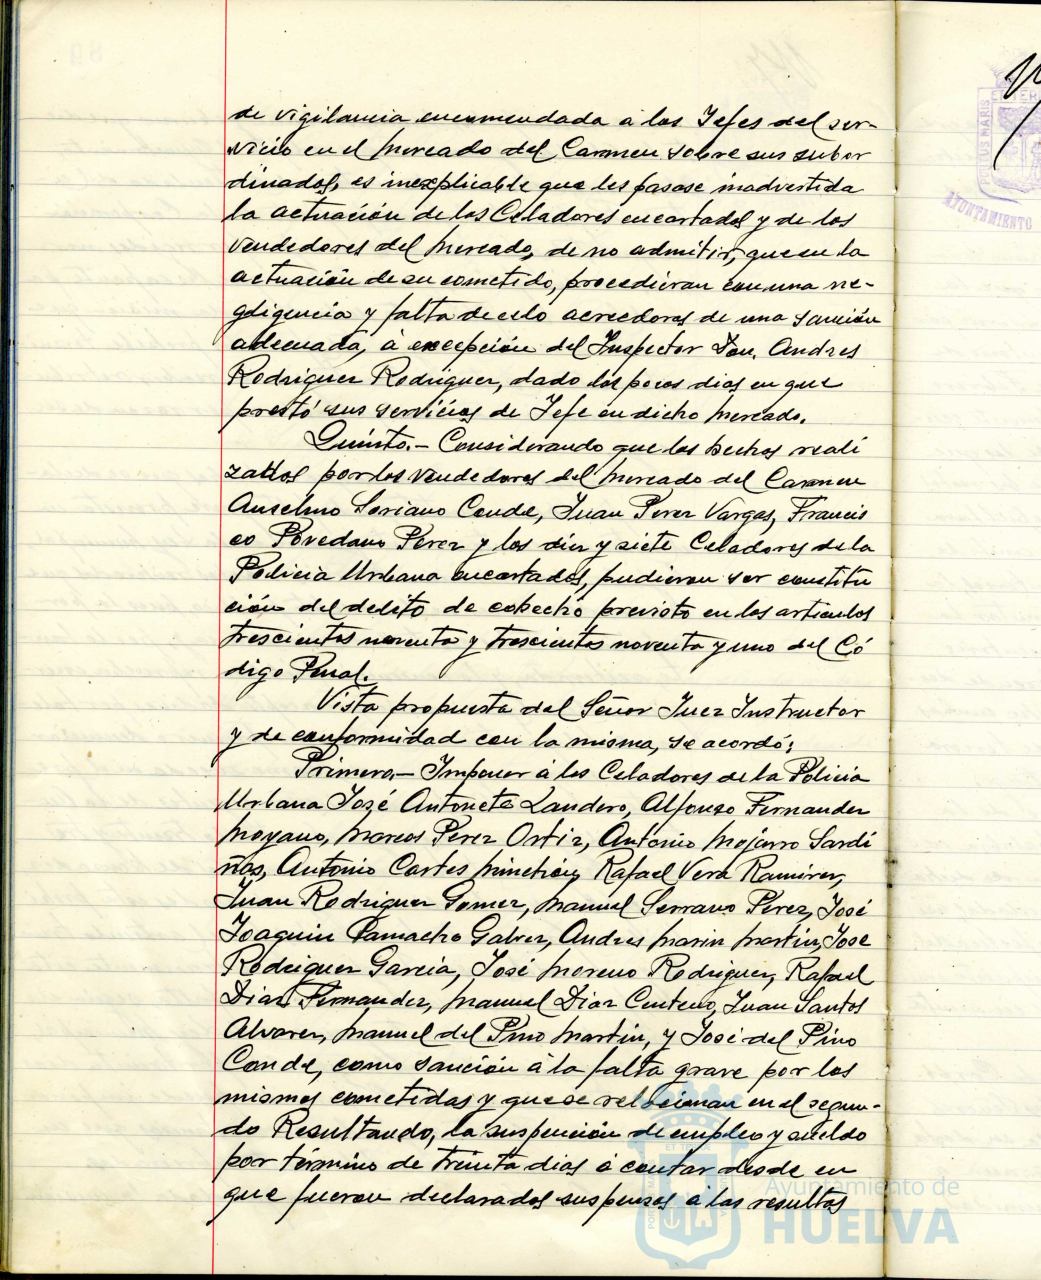 de vigilancia encomendada á los Jefes del ser-
vicio en el mercado del Carmen sobre sus subor
dinados, es inexplicable que les pasase inadvertida
la actuación de los Celadores encartados y de los
vendedores del mercado, de no admitir, que en la
actuación de su cometido, procedieran con una ne-
gligencia y falta de celo acreedoras de una sanción
adecuada, á excepción del Inspector Don, Andres
Rodriguez Rodriguez, dado los pocos dias en que
prestó sus servicios de Jefe en dicho mercado.
Quinto.- Considerando que los hechos reali
zados por los vendedores del mercado del Carmen
Anselmo Soriano Conde, Juan Perez Vargas, Francis
co Povedano Perez y los diez y siete Celadores de la
Policia Urbana encartados, pudieran ser constitu
ción del delito de cohecho previsto en los articulos
trescientos noventa y trescientos noventa y uno del Có
digo Penal.
Vista propuesta del Señor Juez Instructor
y de conformidad con la misma, se acordó:
Primero.- Imponer á los Celadores de la Policia
Urbana José Antonete Landero, Alfonso Fernandez
Moyano, Marcos Perez Ortiz, Antonio Mojarro Sardi
ñas, Antonio Cortes Rafael Vera Ramirez,
Juan Rodriguez Gomez, Manuel Serrano Perez, José
Joaquin Camacho Galvez, Andres Marin Martin, Jose
Rodriguez Garcia, José Moreno Rodriguez, Rafael
Diaz Fernandez, Manuel Diaz Centeno, Juan Santos
Alvarez, Manuel del Pino Martin, y José del Pino
Conde, como sanción á la falta grave por los
mismos cometidas y que se relacionan en el segun-
do Resultando, la suspención de empleo y sueldo
por término de treinta dias á contar desde en
que fueron declarados suspensos á las resultas
Ayuntamiento de
HUELVA
PORTUS MARIS
AYUNTAMIENTO